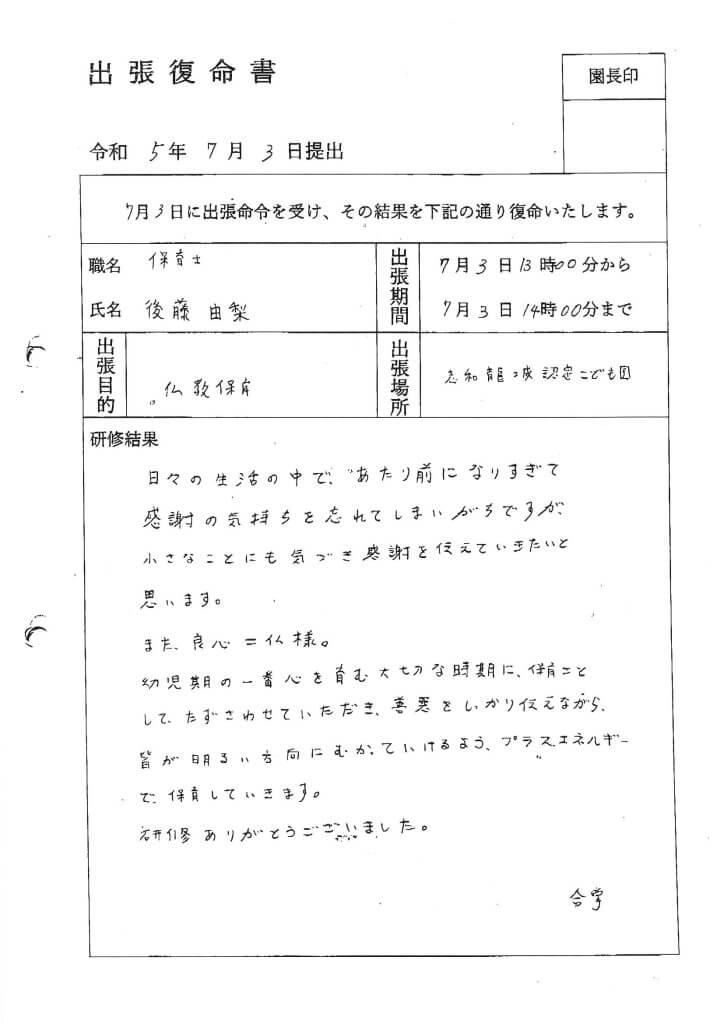 出張復命書
園長印
令和 5年 7月 3日提出
7月3日に出張命令を受け、その結果を下記の通り復命いたします。
職名 保育士
氏名 後藤 由梨
出張期間
7月3日13時00分から
7月3日14時00分まで
出張目的
仏教保育
出張場所
志和龍城認定こども園
研修結果
日々の生活の中で、あたり前になりすぎて
感謝の気持ちを忘れてしまいがちですが、
小さなことにも気づき感謝を伝えていきたいと
思います。
また、良心=仏様。
幼児期の一番心を育む大切な時期に、保育士と
して、たずさわせていただき、善悪をしっかり伝えながら、
皆が明るい方向にむかっていけるよう、プラスエネルギー
で、保育していきます。
研修ありがとうございました。
合掌